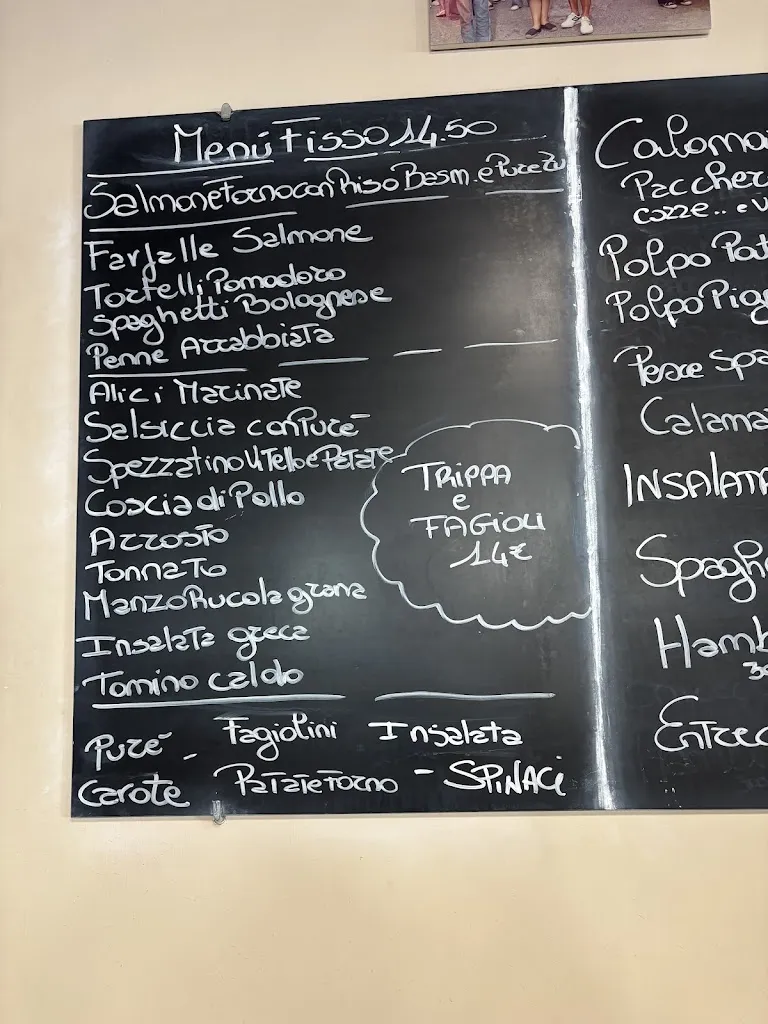 Menù Fisso 14.50
Salmone Forno con Riso Basm. e
Farfalle Salmone
Tortelli Pomodoro
Spaghetti Bolognese
Penne Arrabbiata
Alici Marinate
Salsiccia con Purè
Spezzatino Vitello e Patate
Coscia di Pollo
Arrosto
Tonnato
Manzo Rucola grana
Insalata greca
Tomino caldo
TRIPPA
e
FAGIOLI
14€
Purè - Fagiolini Insalata
Carote Patate Forno - SPINACI
Calama
Paccher
cozze.. e V
Polpo Pat
Polpo Pig
Pesce Spa
Calama
INSALATA
Spaghe
Hamb
30
Entrec